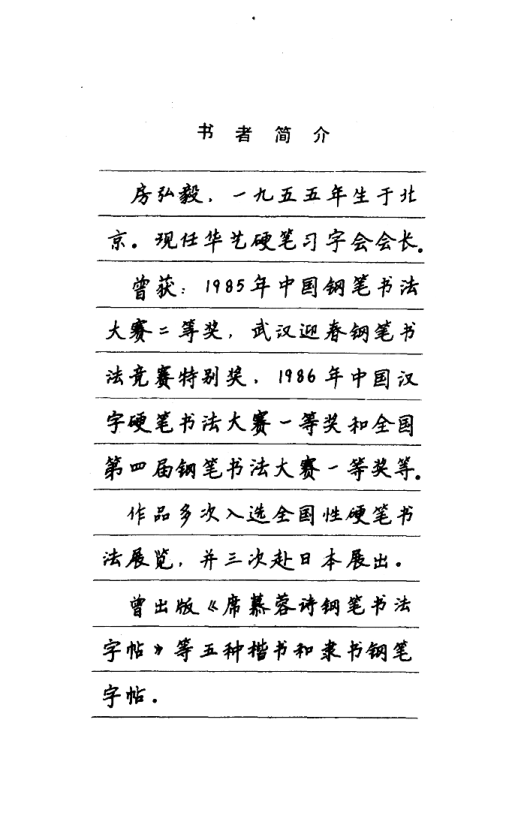 书者简介
房弘毅，一九五五年生于北
京。现任华艺硬笔习字会会长。
曾获：1985年中国钢笔书法
大赛二等奖，武汉迎春钢笔书
法竞赛特别奖，1986年中国汉
字硬笔书法大赛一等奖和全国
第四届钢笔书法大赛一等奖等。
作品多次入选全国性硬笔书
法展览，并三次赴日本展出。
曾出版《席慕蓉诗钢笔书法
字帖》等五种楷书和隶书钢笔
字帖。